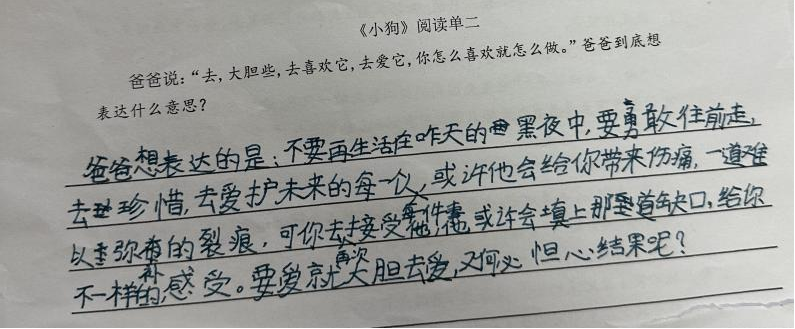 《小狗》阅读单二
爸爸说：“去，大胆些，去喜欢它，去爱它，你怎么喜欢就怎么做。”爸爸到底想
表达什么意思？
爸爸想表达的是：不要再生活在昨天的黑夜中，要勇敢往前走，
去珍惜，去爱护未来的每一个，或许他会给你带来伤痛，一道难
以弥补的裂痕，可你去接受每件事，他或许会填上那道缺口，给你
不一样的感受。要爱就再次大胆去爱，又何必怛心结果呢？